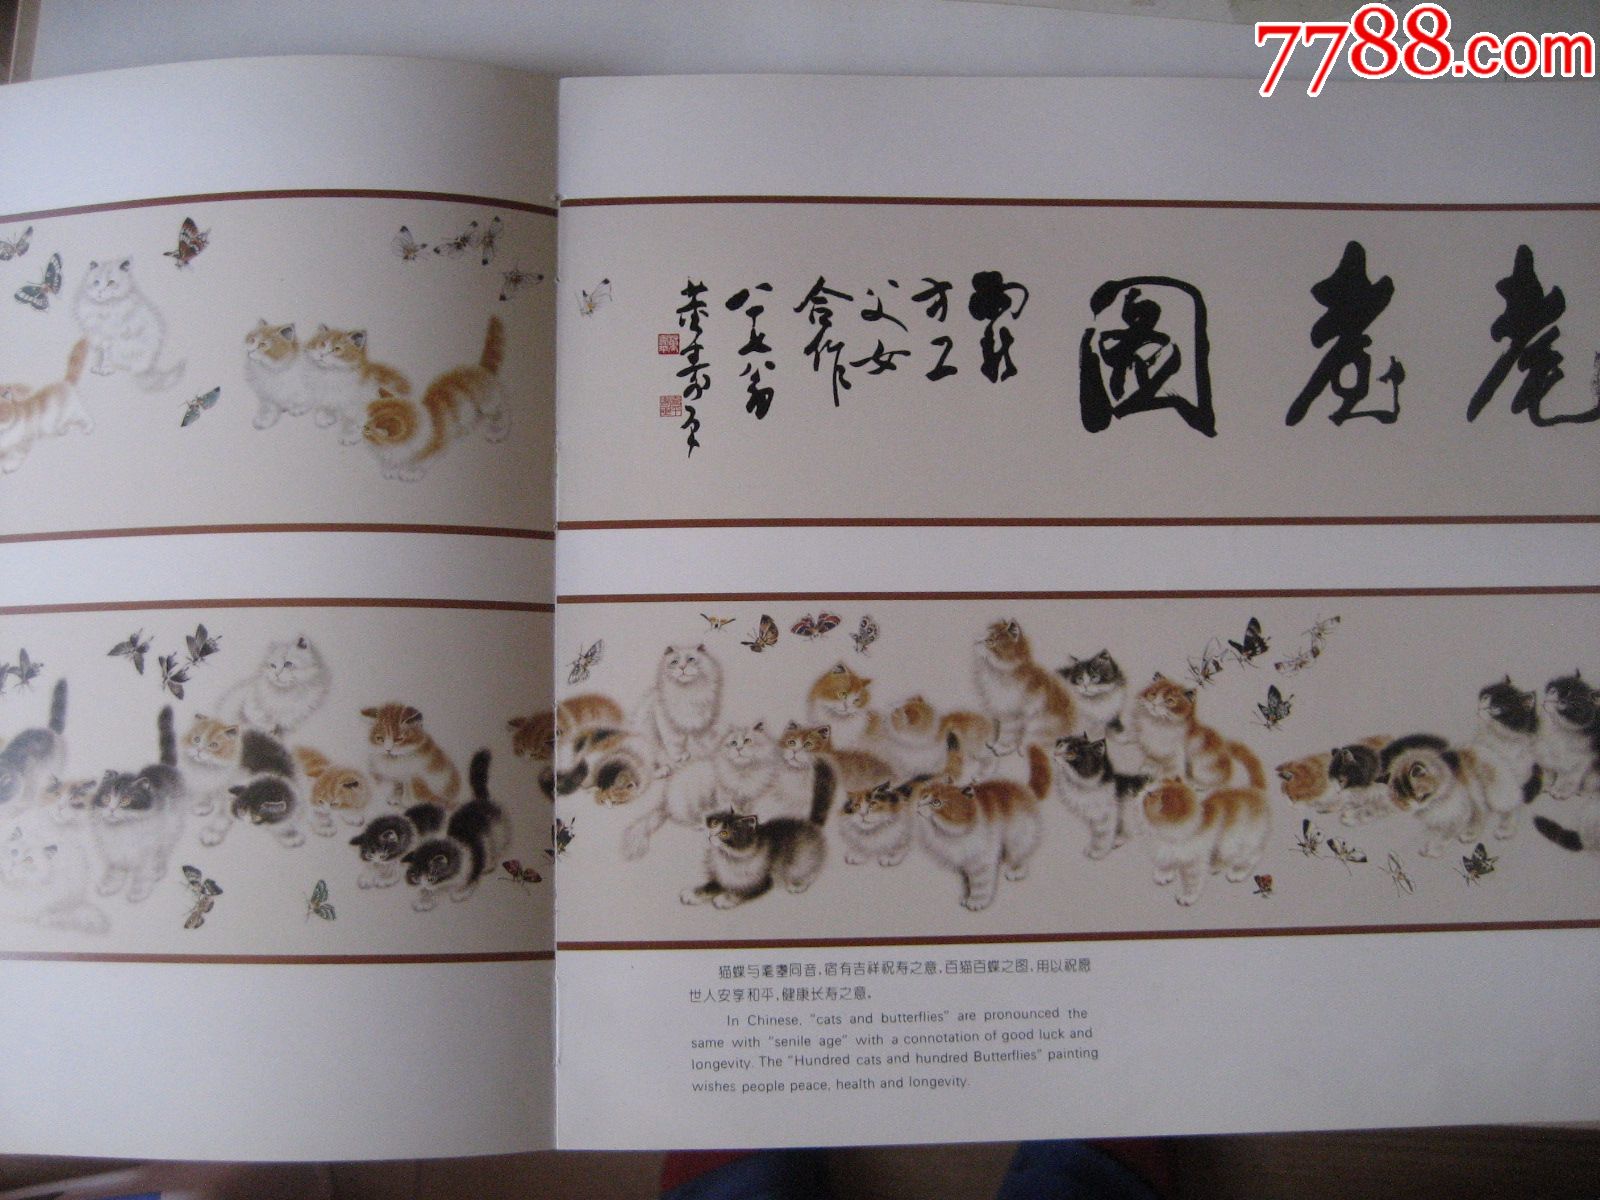 7788.com
耄耋图
方工
父女
合作
八七翁
董寿平
猫蝶与耄耋同音,宿有吉祥祝寿之意,百猫百蝶之图,用以祝愿
世人安享和平,健康长寿之意。
In Chinese, "cats and butterflies" are pronounced the
same with "senile age" with a connotation of good luck and
longevity. The "Hundred cats and hundred Butterflies" painting
wishes people peace, health and longevity.